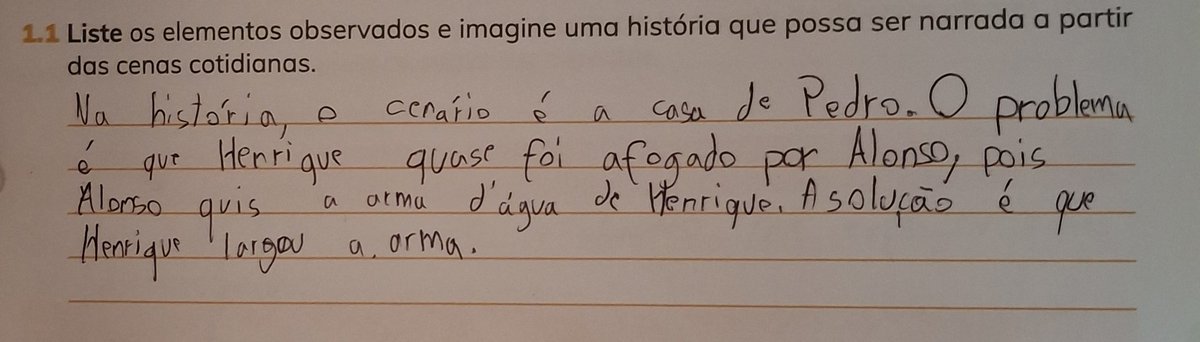 1.1 Liste os elementos observados e imagine uma história que possa ser narrada a partir
das cenas cotidianas.
Na história, o cenário é a casa de Pedro. O problema
é que Henrique quase foi afogado por Alonso, pois
Alonso quis a arma d'água de Henrique. A solução é que
Henrique largou a arma.